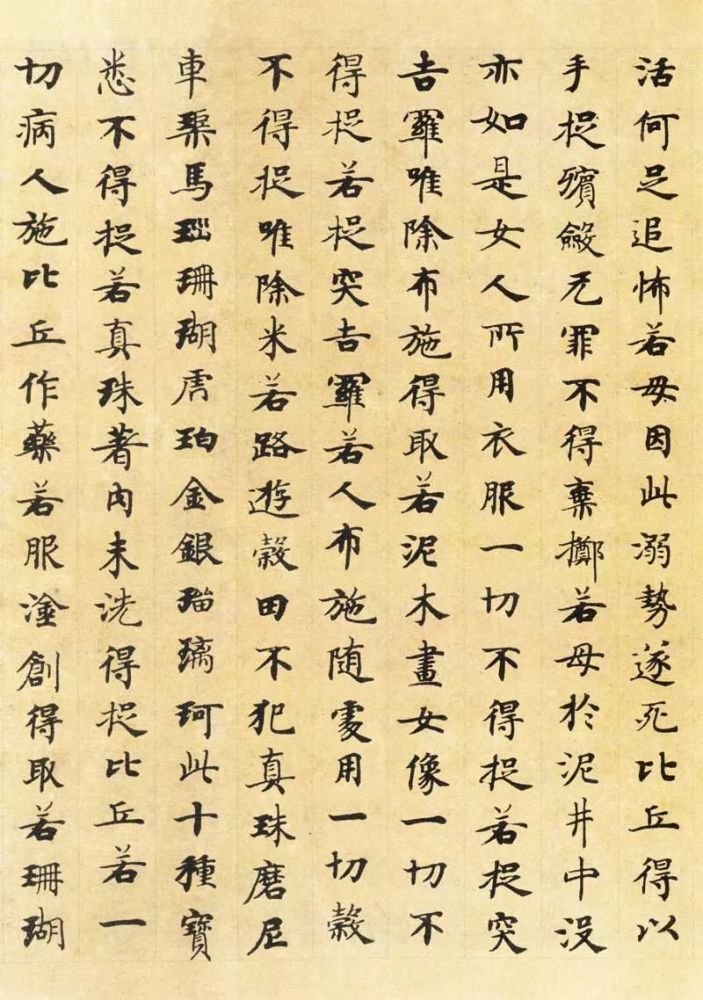 活何足追怖若母因此溺勢遂死比丘得以
手捉殯斂无罪不得棄擲若母於泥井中没
亦如是女人所用衣服一切不得捉若捉突
吉羅唯除布施得取若泥木畫女像一切不
得捉若捉突吉羅若人布施随處用一切穀
不得捉唯除米若路遊穀田不犯真珠磨尼
車𤦲馬瑙珊瑚虎珀金銀瑠璃珂此十種寶
悉不得捉若真珠著内未洗得捉比丘若一
切病人施比丘作藥若服塗創得取若珊瑚